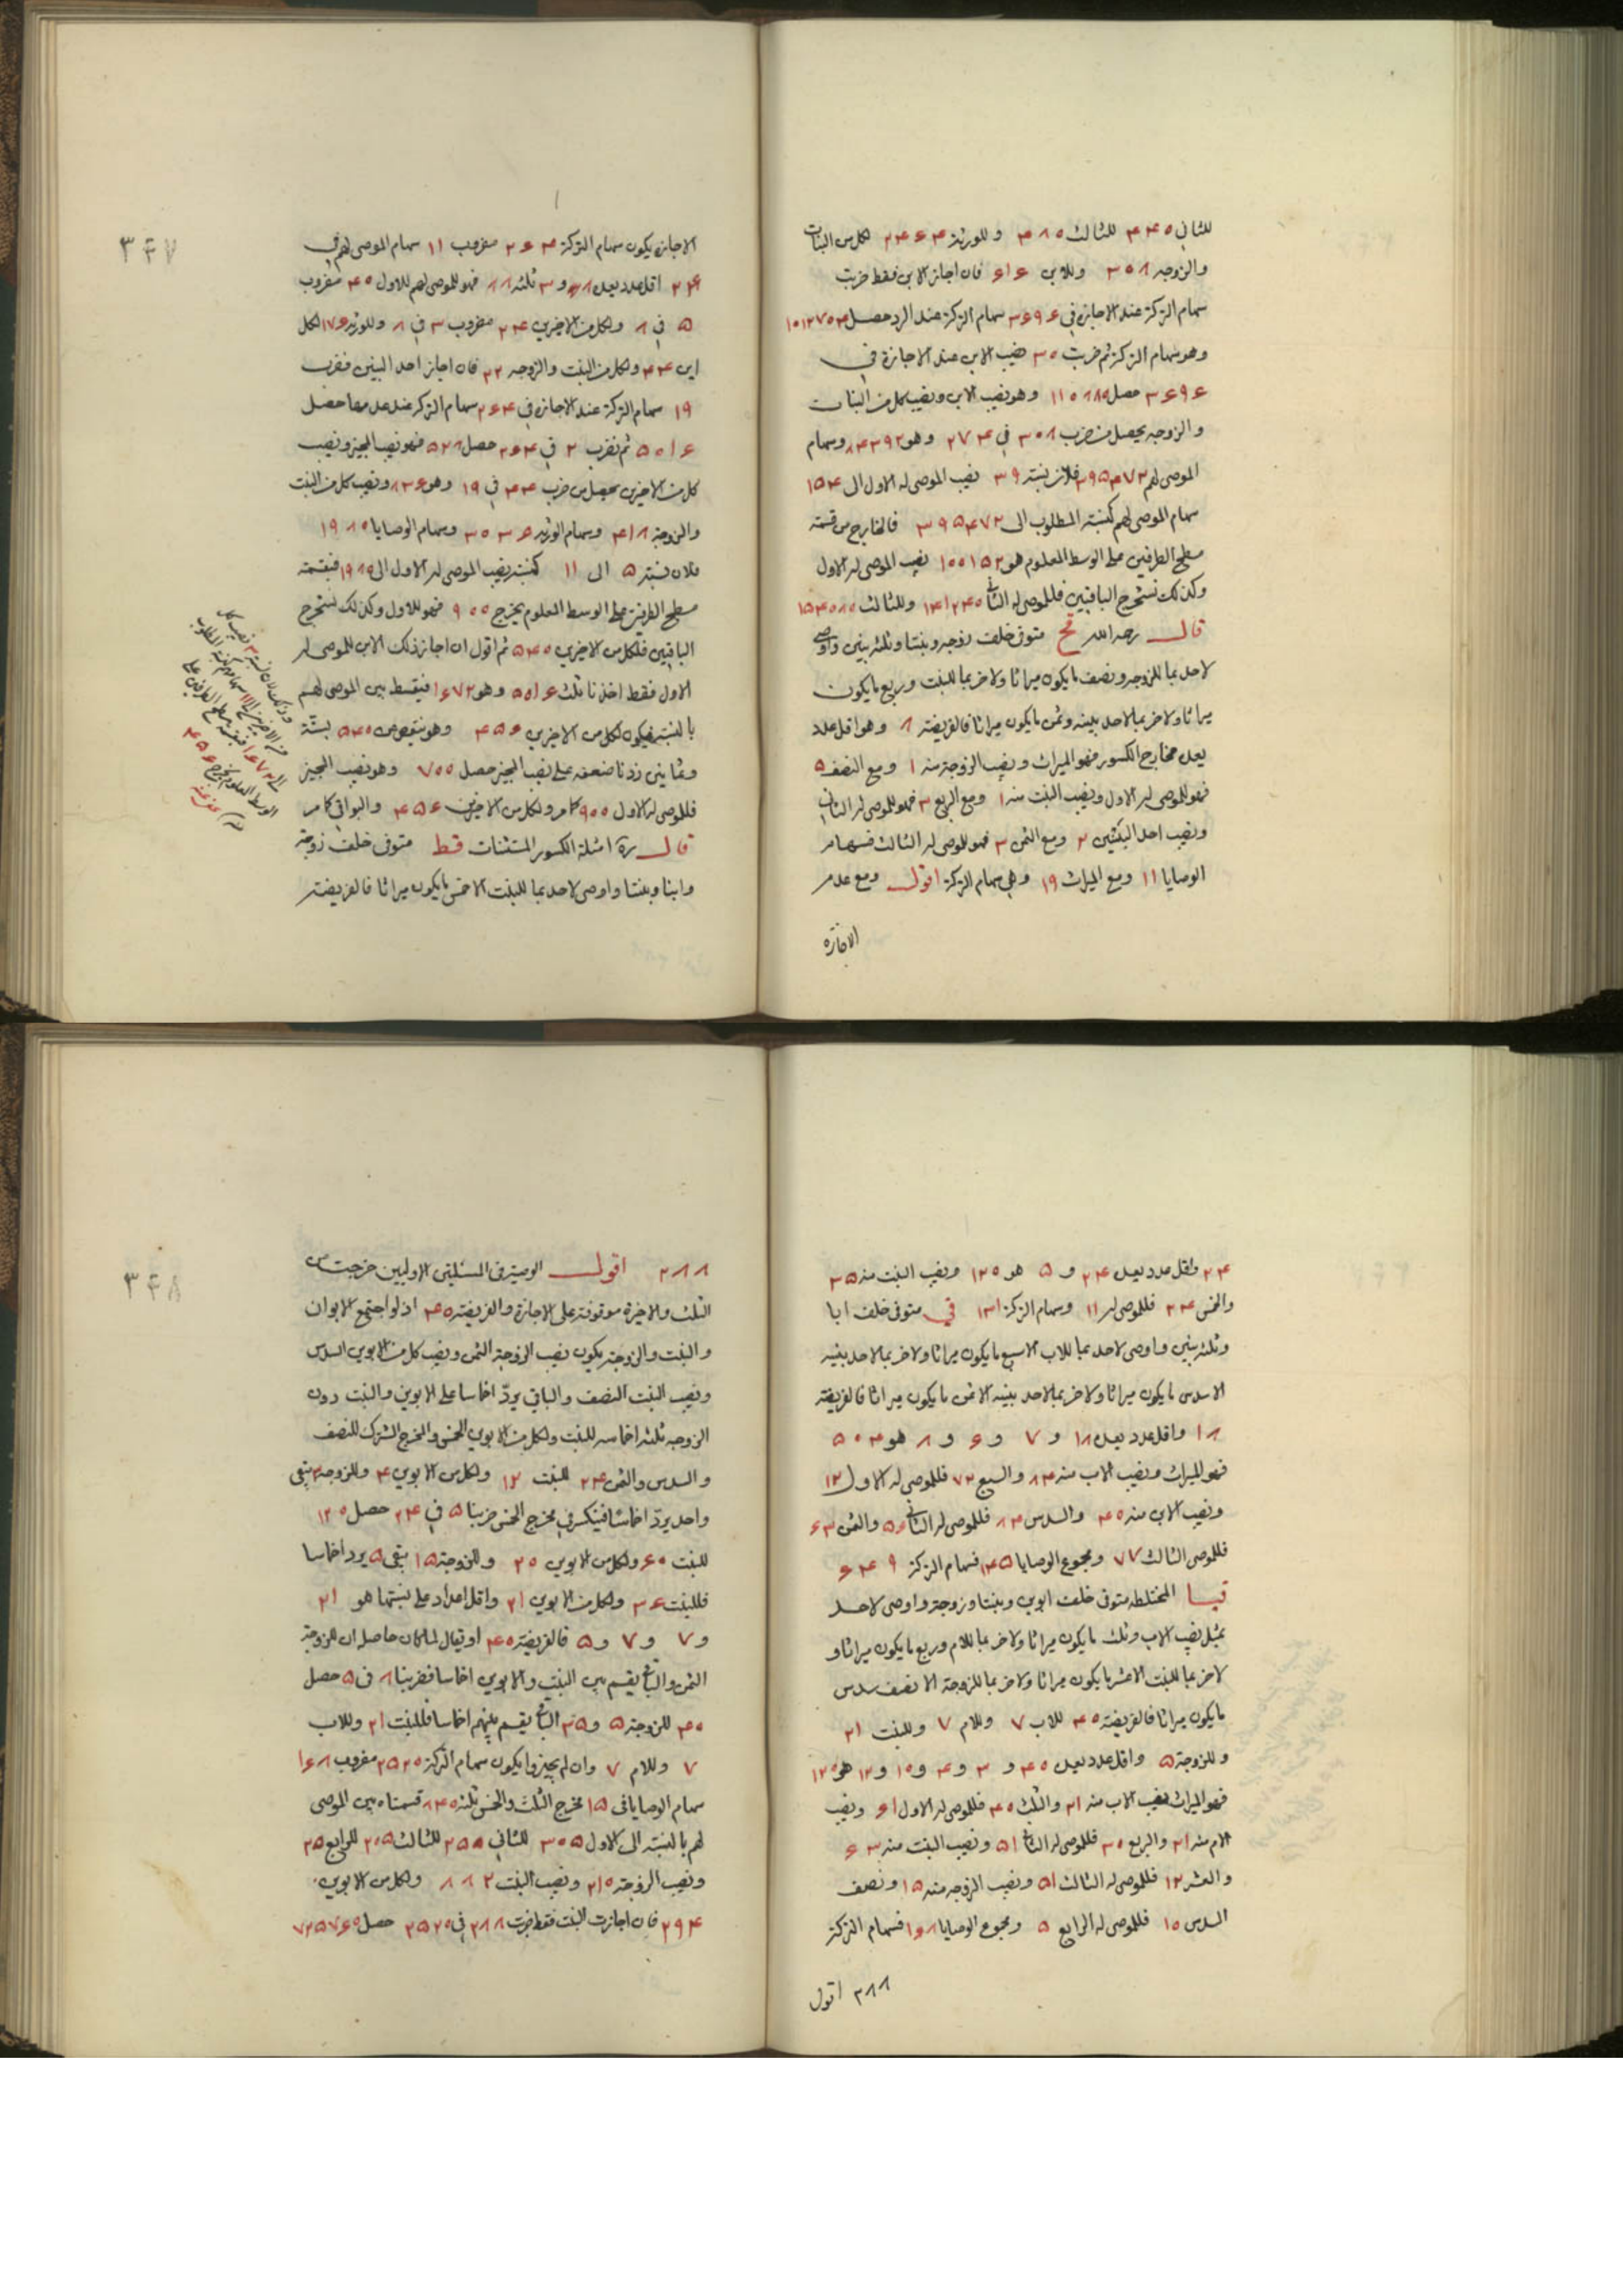 للثاني ٣٤٥ للثالث ٣٨٥ وللورثة لكل من البنات
والزوجه ٣٥٨ وللابن ٦١٦ فان اجاز الابن فقط ضربت
سهام التركة عند الاجازة في ٣٦٩٦ سهام التركة عند الرد حصل
وهو سهام التركة ثم ضربت ٣٥ نصيب الابن عند الاجازة في
٣٦٩٦ حصل وهو نصيب الابن ونصيب كل من البنات
والزوجه يحصل من ضرب ٣٠٨ في ٢٧٤ وهو ٨٤٣٩٢ وسهام
الموصى لهم ٣٩٥٤٧٢ فلان نسبة ٣٩ نصيب الموصى له الاول الى ١٥٤
سهام الموصى لهم كنسبة المطلوب الى ٣٩٥٤٧٢ فالخارج من قسمة
مسطح الطرفين على الوسط المعلوم هو ١٠٠١٥٢ نصيب الموصى له الاول
وكذلك نستخرج الباقيين فللموصى له الثاني وللثالث
قال رحمه الله قح متوفى خلف زوجه وبنتا وثلثه بنين واوصى
لاحد بما للزوجه ونصف ما يكون ميراثا ولاخر بما للبنت وربع ما يكون
ميراثا ولاخر بما لاحد بنيه وثمن ما يكون ميراثا فالفريضة ٨ وهو اقل عدد
يعد مخارج الكسور فهو الميراث ونصيب الزوجة منه ١ ومع النصف ٥
فهو للموصى له الاول ونصيب البنت منه ١ ومع الربع ٣ فهو للموصى له الثاني
ونصيب احد البنين ٢ ومع الثمن ٣ فهو للموصى له الثالث فسهام
الوصايا ١١ ومع الميراث ١٩ وهي سهام التركة اقول ومع عدم
الاجازة
٣٤٧
الاجازة يكون سهام التركة ٢٦٤ مضروب ١١ سهام الموصى لهم في
٢٤ اقل عدد يعد ٨ و ٣ ثلثه ٨٨ فهو للموصى لهم للاول ٤٠ مضروب
٥ في ٨ ولكل من الاخيرين ٢٤ مضروب ٣ في ٨ وللورثة ١٧٦ لكل
ابن ٤٤ ولكل من البنت والزوجه ٢٢ فان اجاز احد البنين فضرب
١٩ سهام التركة عند الاجازة في ٢٦٤ سهام التركة عند عدمها حصل
٥٠١٦ ثم نضرب ٢ في ٢٦٤ حصل ٥٢٨ فهو نصيب المجيز ونصيب
كل من الاخيرين يحصل من ضرب ٤٤ في ١٩ وهو ٨٣٦ ونصيب كل من البنت
والزوجة ٤١٨ وسهام الورثة ٣٠٣٦ وسهام الوصايا ١٩٨٠
فلان نسبة ٥ الى ١١ كنسبة نصيب الموصى له الاول الى ١٩٨٠ فبقسمة
مسطح الطرفين على الوسط المعلوم يخرج ٩٠٠ فهو للاول وكذلك نستخرج
الباقيين فلكل من الاخيرين ٥٤٠ ثم اقول ان اجاز ذلك الابن للموصى له
الاول فقط اخذنا ثلث ٥٠١٦ وهو ١٦٧٢ فيقسط بين الموصى لهم
بالنسبة فيكون لكل من الاخيرين ٤٥٦ وهو ينقص من ٥٤٠ بستة
وثمانين زدنا ضعفه على نصيب المجيز حصل ٧٠٠ وهو نصيب المجيز
فللموصى له الاول ٩٠٠ كما مر ولكل من الاخيرين ٤٥٦ والبواقي كما مر
قال ره امثلة الكسور المستثنات قط متوفى خلف زوجة
وابنا وبنتا واوصى لاحد بما للبنت الا خمس ما يكون ميراثا فالفريضة
٢٤ واقل عدد يعد ٢٤ و ٥ هو ١٢٠ ونصيب البنت منه ٣٥
والخمس ٢٤ فللموصى له ١١ وسهام التركة ١٣١ قي متوفى خلف ابا
وثلثه بنين واوصى لاحد بما للاب الا سبع ما يكون ميراثا ولاخر بما لاحد بنيه
الا سدس ما يكون ميراثا ولاخر بما لاحد بنيه الا ثمن ما يكون ميراثا فالفريضة
١٨ واقل عدد يعد ١٨ و ٧ و ٦ و ٨ هو ٥٠٤
فهو للميراث ونصيب الاب منه ٨٤ والسبع ٧٢ فللموصى له الاول ١٢
ونصيب الابن منه ١٤٠ والسدس ٨٤ فللموصى له الثاني ٥٦ والثمن ٦٣
فللموصى الثالث ٧٧ ومجموع الوصايا ١٤٥ فسهام التركة ٦٤٩
قيا المختلطه متوفى خلف ابوين وبنتا وزوجة واوصى لاحد
بمثل نصيب الاب وثلث ما يكون ميراثا ولاخر بما للام وربع ما يكون ميراثا و
لاخر بما للبنت الا عشر ما يكون ميراثا ولاخر بما للزوجة الا نصف سدس
ما يكون ميراثا فالفريضة ٤٠ للاب ٧ وللام ٧ وللبنت ٢١
وللزوجة ٥ واقل عدد يعد ٤٠ و ٣ و ٤ و ١٠ و ١٢ هو ١٢٠
فهو الميراث نصيب الاب منه ٢١ والثلث ٤٠ فللموصى له الاول ٦١ ونصيب
الام منه ٢١ والربع ٣٠ فللموصى له الثاني ٥١ ونصيب البنت منه ٦٣
والعشر ١٢ فللموصى له الثالث ٥١ ونصيب الزوجه منه ١٥ ونصف
السدس ١٠ فللموصى له الرابع ٥ ومجموع الوصايا ١٦٨ فسهام التركة
٢٨٨ اقول
٣٤٨
٢٨٨ اقول الوصية في المسئلتين الاوليين خرجت من
الثلث والاخيرة موقوفة على الاجازة والفريضة ٤٠ اذ لو اجتمع الابوان
والبنت والزوجة يكون نصيب الزوجة الثمن ونصيب كل من الابوين السدس
ونصيب البنت النصف والباقي يرد اخماسا على الابوين والبنت دون
الزوجه ثلثه اخماسه للبنت ولكل من الابوين الخمس والمخرج المشترك للنصف
والسدس والثمن ٢٤ للبنت ١٢ ولكل من الابوين ٤ وللزوجة ٣ يبقى
واحد يرد اخماسا فينكسر في مخرج الخمس ضربنا ٥ في ٢٤ حصل ١٢٠
للبنت ٦٠ ولكل من الابوين ٢٠ وللزوجة ١٥ يبقى ٥ يرد اخماسا
فللبنت ٦٣ ولكل من الابوين ٢١ واقل اعداد على نسبتها هو ٢١
و ٧ و ٧ و ٥ فالفريضة ٤٠ او يقال لما كان حاصله ان للزوجة
الثمن والباقي يقسم بين البنت والابوين اخماسا فضربنا ٨ في ٥ حصل
٤٠ للزوجة ٥ و ٣٥ الباقي يقسم بينهم اخماسا فللبنت ٢١ وللاب
٧ وللام ٧ وان لم يجيزوا يكون سهام التركة ٢٥٢٠ مضروب ١٦٨
سهام الوصايا في ١٥ مخرج الثلث والخمس ثلثه ٨٤٠ قسمناه بين الموصى
لهم بالنسبة الى الاول ٣٠٥ للثاني ٢٥٥ للثالث ٢٥٥ للرابع ٢٥
ونصيب الزوجة ٢١٠ ونصيب البنت ٨٨٢ ولكل من الابوين
٢٩٤ فان اجازت البنت فقط ضربت ٢٨٨ في ٢٥٢٠ حصل ٧٢٥٧٦٠